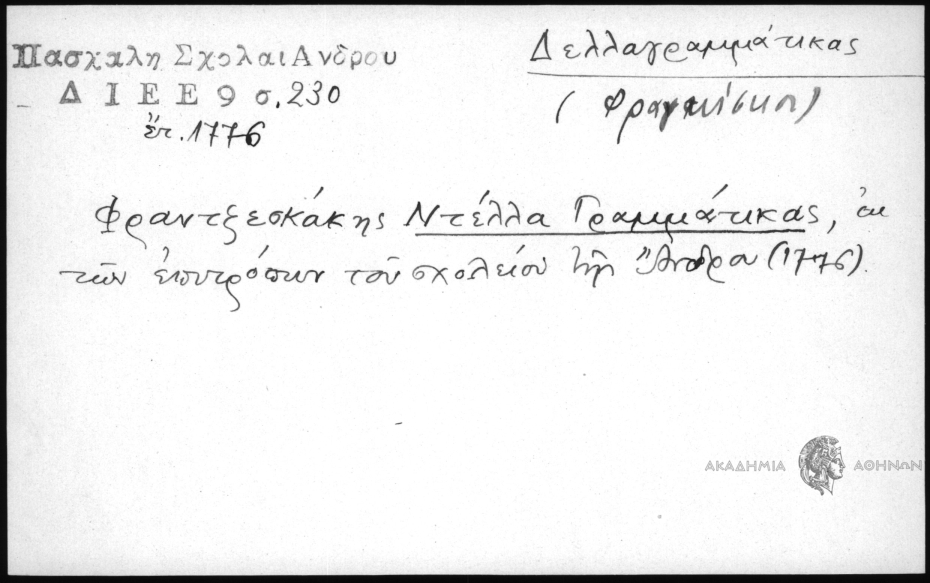 Πασχαλη Σχολαι Ανδρου
Δ Ι Ε Ε 9 σ. 230
ἔτ. 1776
Δελλαγραμμάτικας
(Φραγκίσκος)
Φραντζεσκάκης Ντέλλα Γραμμάτικας, ἐκ
τῶν ἐπιτρόπων τοῦ σχολείου τῆς Ἄνδρου (1776).
ΑΚΑΔΗΜΙΑ ΑΘΗΝΩΝ